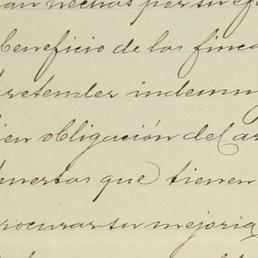 an hechas por su ef
beneficio de las finca
pretender indemn
ien obligación del ar
puertas que tienen
procurar su mejoria